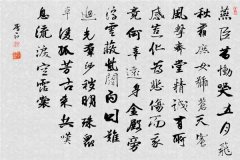 燕臣昔慟哭五月飛
秋霜庶女號蒼天震
風擊齊堂精誠有所
感造化為悲傷而我
竟何辜遠身金殿旁
浮雲蔽紫闥白日難
迴光群沙穢明珠眾
草凌孤芳古來共嘆
息流淚空霑裳